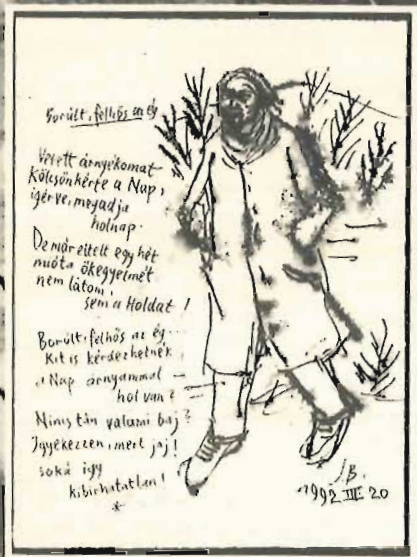 Borúlt, felhős az ég
Vetett árnyékomat
Kölcsönkérte a Nap,
igérve, megadja
holnap.
De már eltelt egy hét
mióta őkegyelmét
nem látom,
sem a Holdat !
Borúlt, felhős az ég...
Kit is kérdezhetnék,
a Nap árnyammal –
hol van ?
Nincs tán valami baj ?
Igyekezzen, mert jaj !
soká így
kibirhatatlan !
*
JB.
1992 III 20